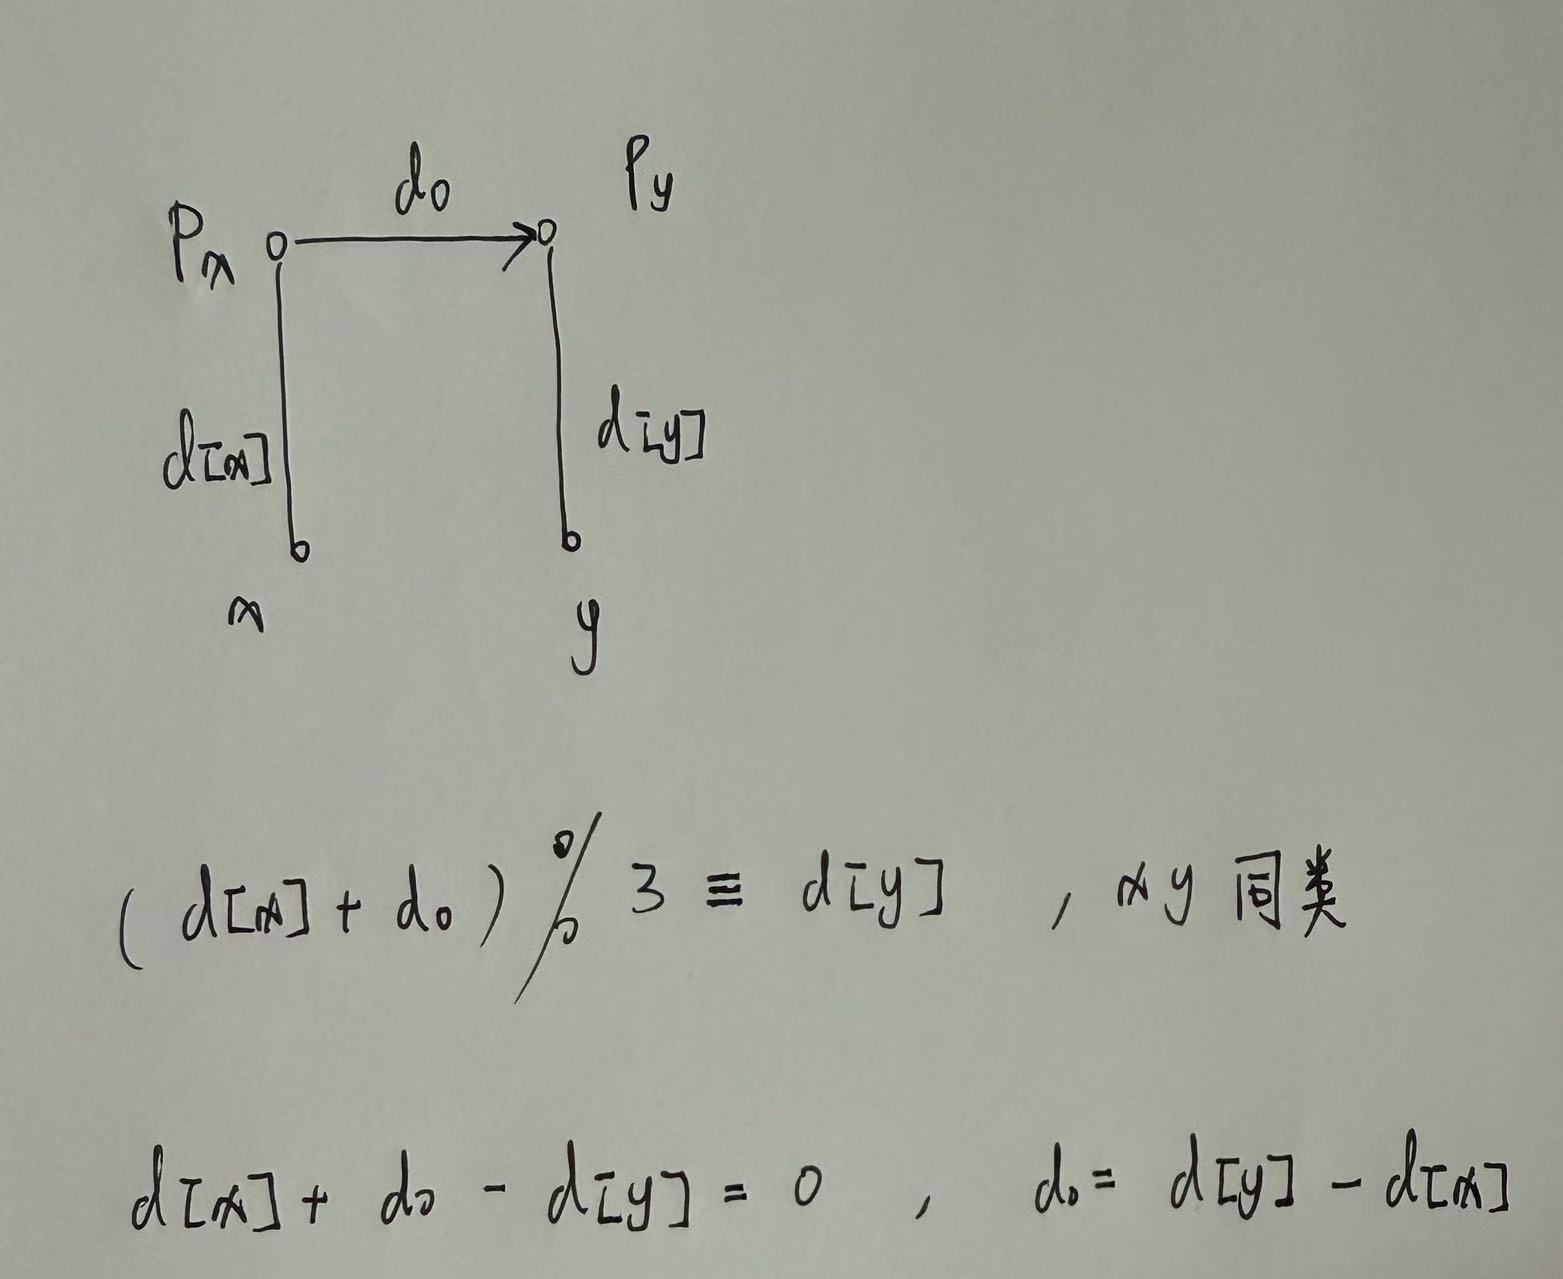 d0 Py
Px
d[x] d[y]
x y
(d[x] + d0) % 3 ≡ d[y] , x y 同类
d[x] + d0 - d[y] = 0 , d0 = d[y] - d[x]